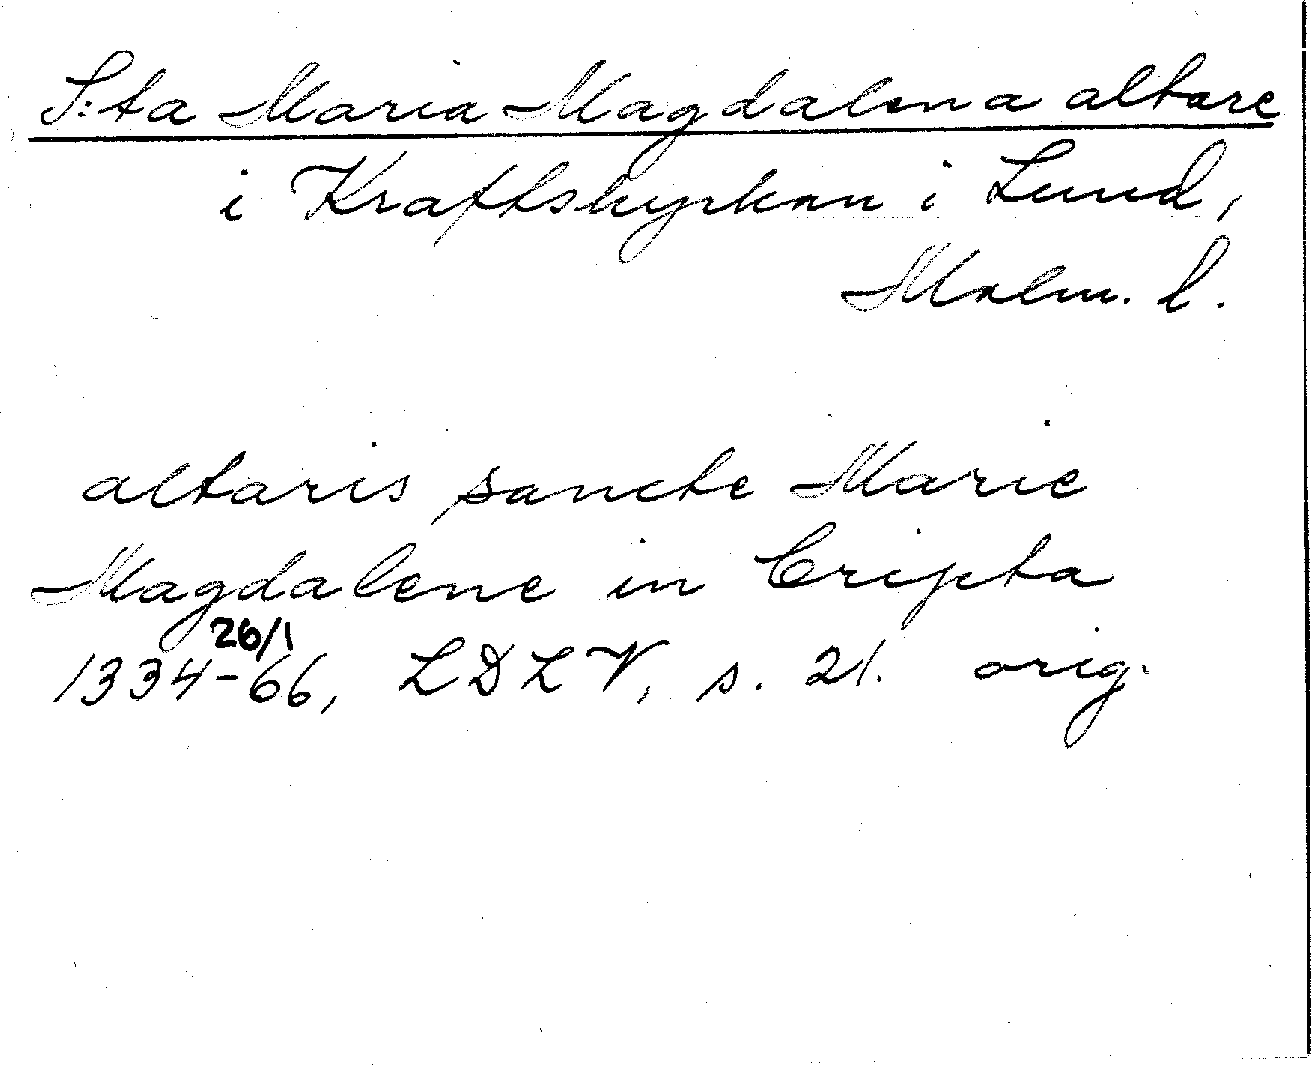 S:ta Maria Magdalena altare
i Kraftskyrkan i Lund,
Malm. l.
altaris sancte Marie
Magdalene in Cripta
26/1
1334-66, LDLV, s. 21. orig.